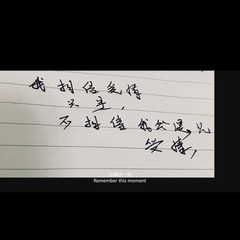 我相信爱情
只是，
不相信我会遇见
爱情，
Remember this moment